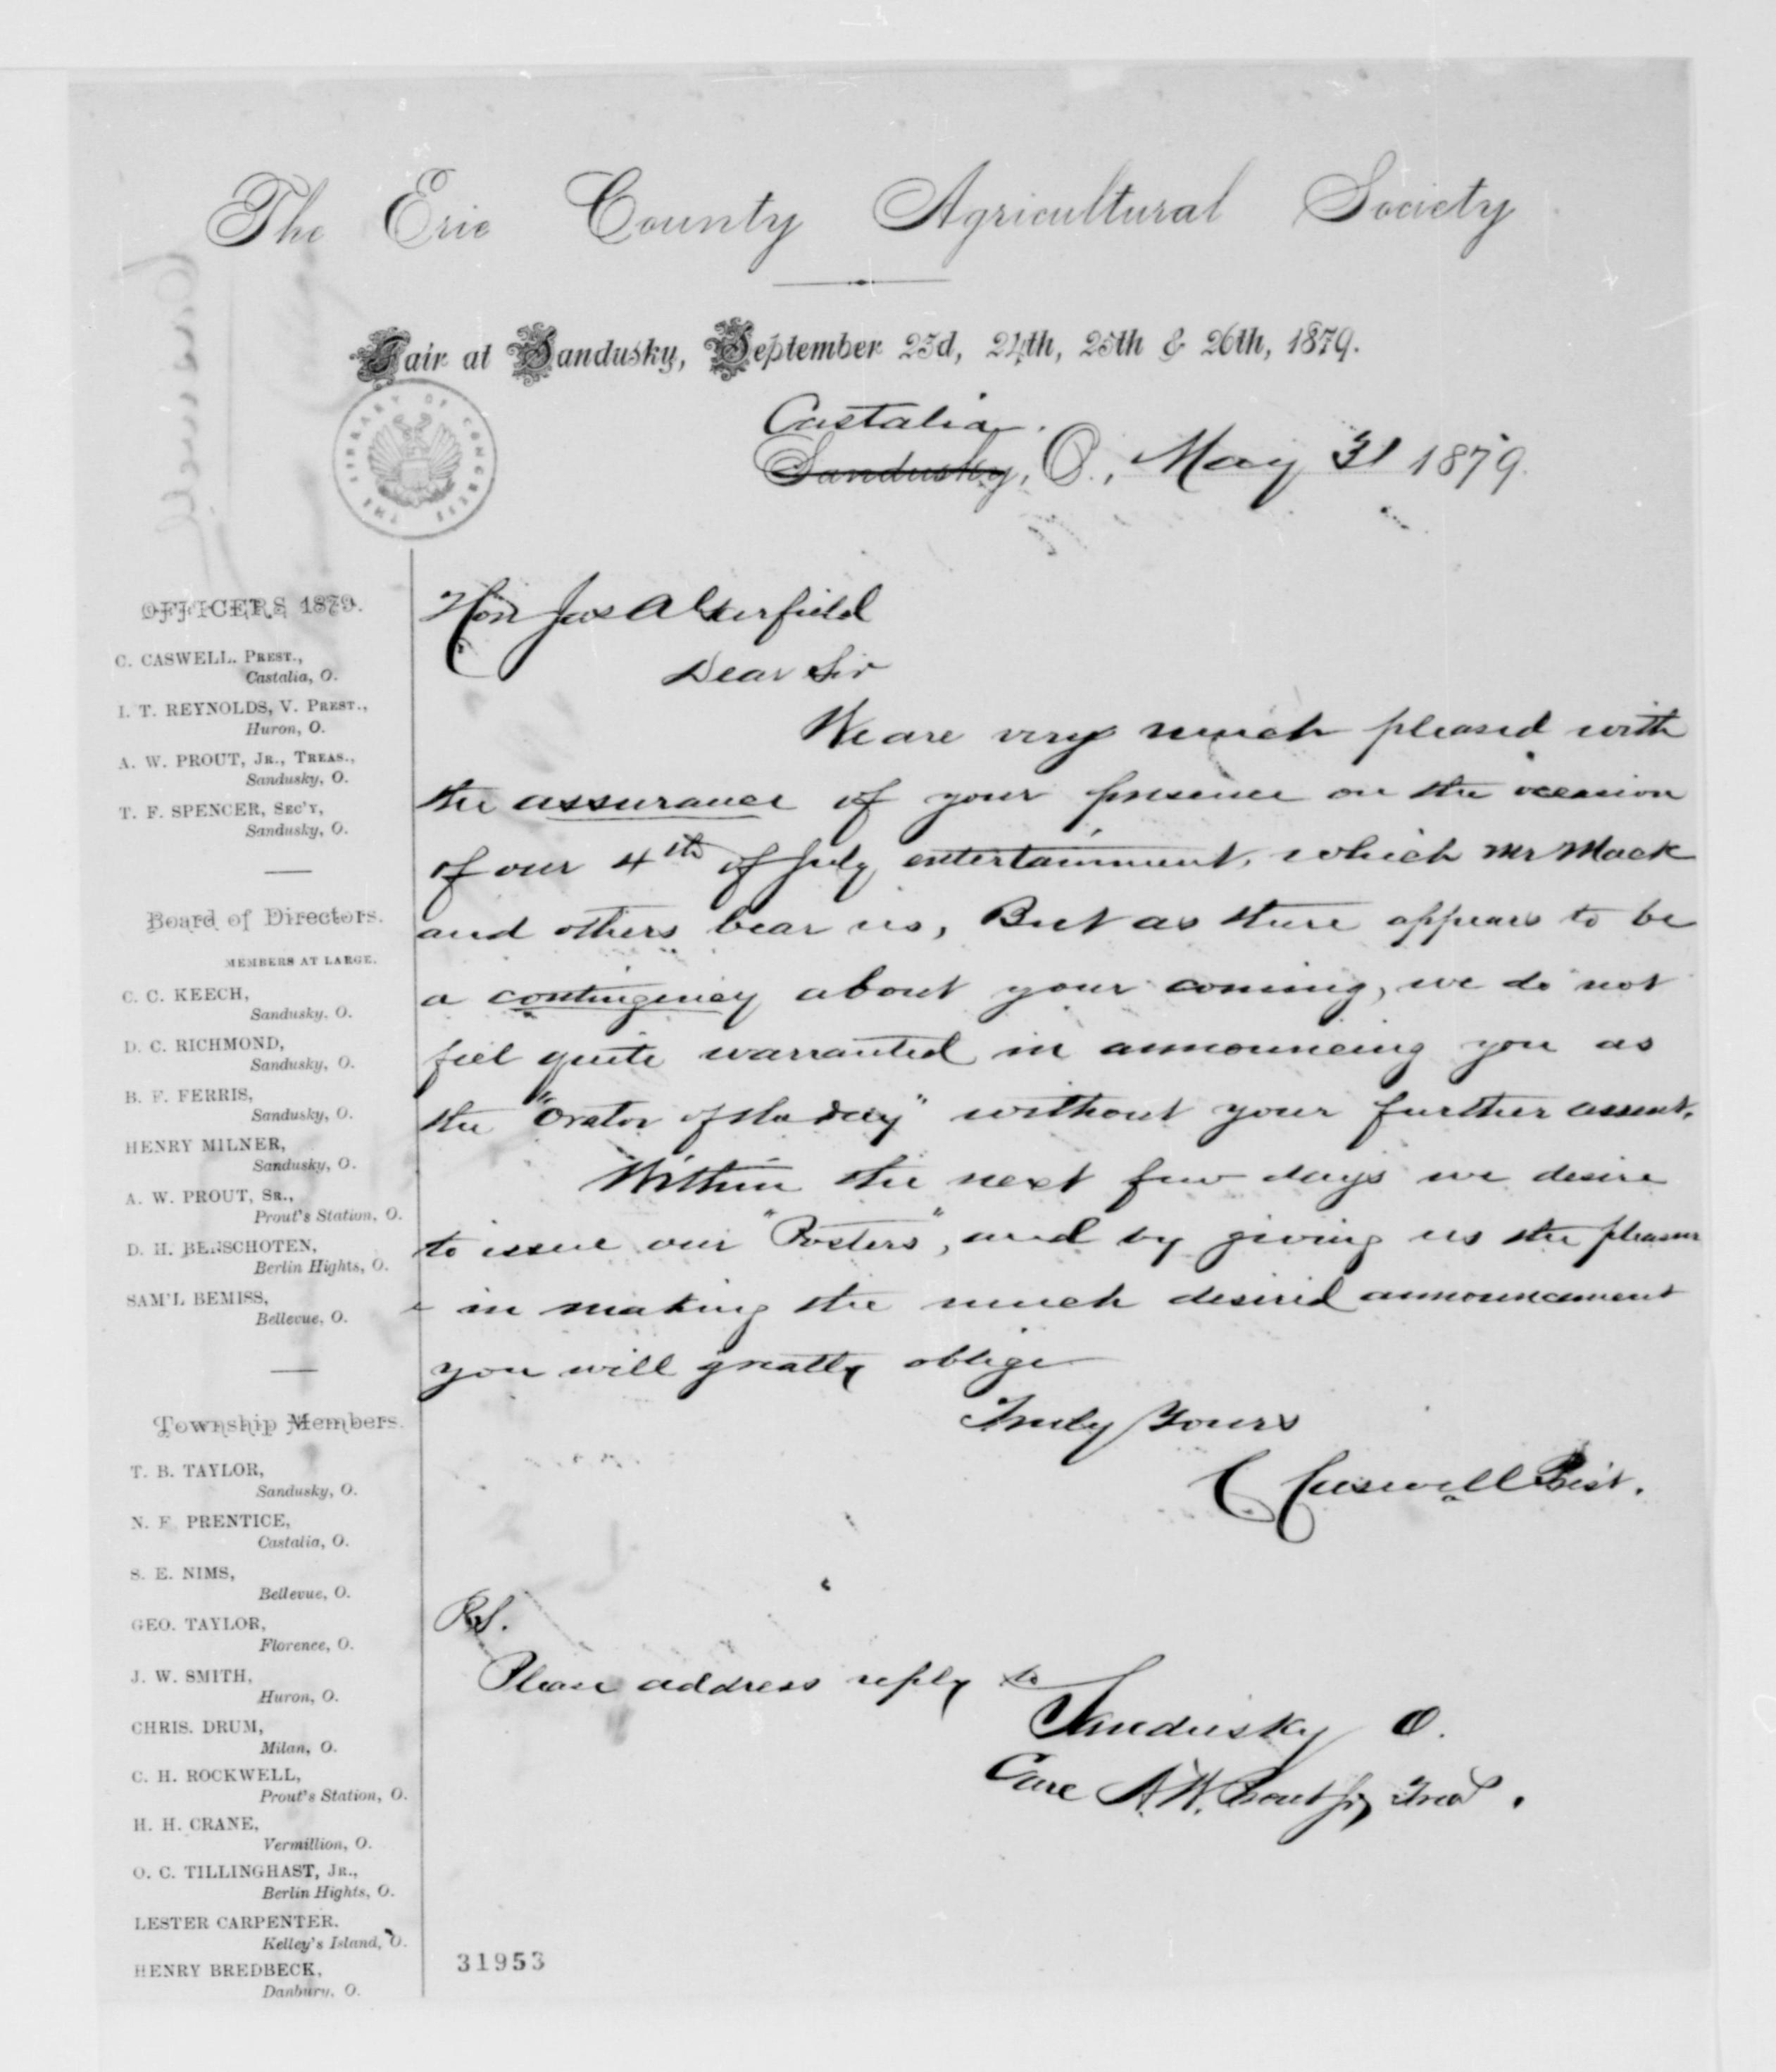 The Erie County Agricultural Society
Fair at Sandusky, September 23d, 24th, 25th & 26th, 1879.
Castalia.
Sandusky, O., May 31 1879.
THE LIBRARY OF CONGRESS
OFFICERS 1879.
C. CASWELL, PREST.,
Castalia, O.
I. T. REYNOLDS, V. PREST.,
Huron, O.
A. W. PROUT, JR., TREAS.,
Sandusky, O.
T. F. SPENCER, SEC'Y,
Sandusky, O.
Board of Directors.
MEMBERS AT LARGE.
C. C. KEECH,
Sandusky, O.
D. C. RICHMOND,
Sandusky, O.
B. F. FERRIS,
Sandusky, O.
HENRY MILNER,
Sandusky, O.
A. W. PROUT, SR.,
Prout's Station, O.
D. H. BENSCHOTEN,
Berlin Hights, O.
SAM'L BEMISS,
Bellevue, O.
Township Members.
T. B. TAYLOR,
Sandusky, O.
N. E. PRENTICE,
Castalia, O.
S. E. NIMS,
Bellevue, O.
GEO. TAYLOR,
Florence, O.
J. W. SMITH,
Huron, O.
CHRIS. DRUM,
Milan, O.
C. H. ROCKWELL,
Prout's Station, O.
H. H. CRANE,
Vermillion, O.
O. C. TILLINGHAST, JR.,
Berlin Hights, O.
LESTER CARPENTER.
Kelley's Island, O.
HENRY BREDBECK,
Danbury, O.
Hon Jas A Garfield
Dear Sir
We are very much pleased with
the assurance of your presence on the occasion
of our 4th of July entertainment, which Mr Mack
and others bear us, But as there appears to be
a contingency about your coming, we do not
feel quite warranted in announcing you as
the "Orator of the day" without your further assent.
Within the next few days we desire
to issue our "Posters", and by giving us the pleasure
in making the much desired announcement
you will greatly oblige
Truly Yours
C Caswell Prest.
P.S.
Please address reply to
Sandusky O.
Care A. W. Prout Jr, Treas.
31953